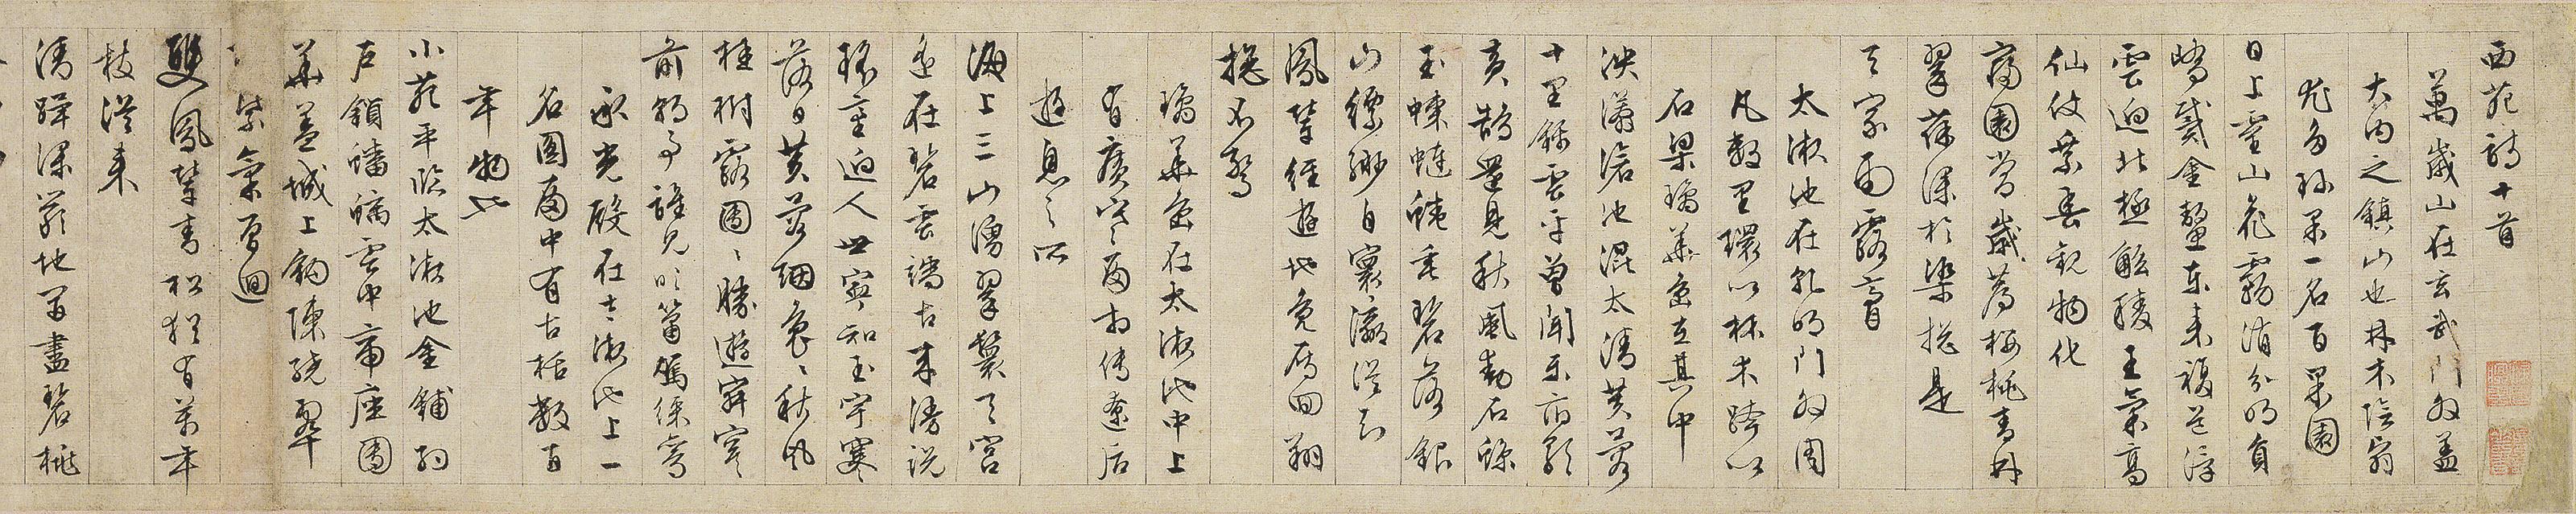 西苑詩十首
萬歲山在玄武門外蓋
大内之鎮山也林木陰翳
尤多珍果一名百果園
日上靈山花霧消分明員
嶠戴金鰲東來複道浮
雲迥北極觚稜王氣高
仙仗乘春觀物化
寢園常歲薦櫻桃青林
翠葆深於染總是
天家雨露膏
太液池在乾明門外周
凡數里環以林木跨以
石梁瓊華島在其中
泱漭滄池混太清芙蓉
十里錦雲平曾聞樂府歌
黃鵠還見秋風動石鯨
玉蝀蜿蜒垂碧落銀
山縹緲自寰瀛從知
鳳輦經遊地鳧雁迴翔
總不驚
瓊華島在太液池中上
有廣寒殿相傳遼后
遊息之所
海上三山擁翠鬟天宮
遙在碧雲端古來漫說
瑤臺迥人世寧知玉宇寒
落日芙蓉煙裊裊秋風
桂樹露團團勝遊寂寞
前朝事誰見吹簫駕綵鸞
承光殿在太液池上一
名圓殿中有古栝數百
年物也
小苑平臨太液池金鋪約
戶鎖蟠螭雲中帝座團
華蓋城上鉤陳繞翠
紫氣曾迴
雙鳳輦青松猶有萬年
枝從來
清蹕深嚴地開盡碧桃